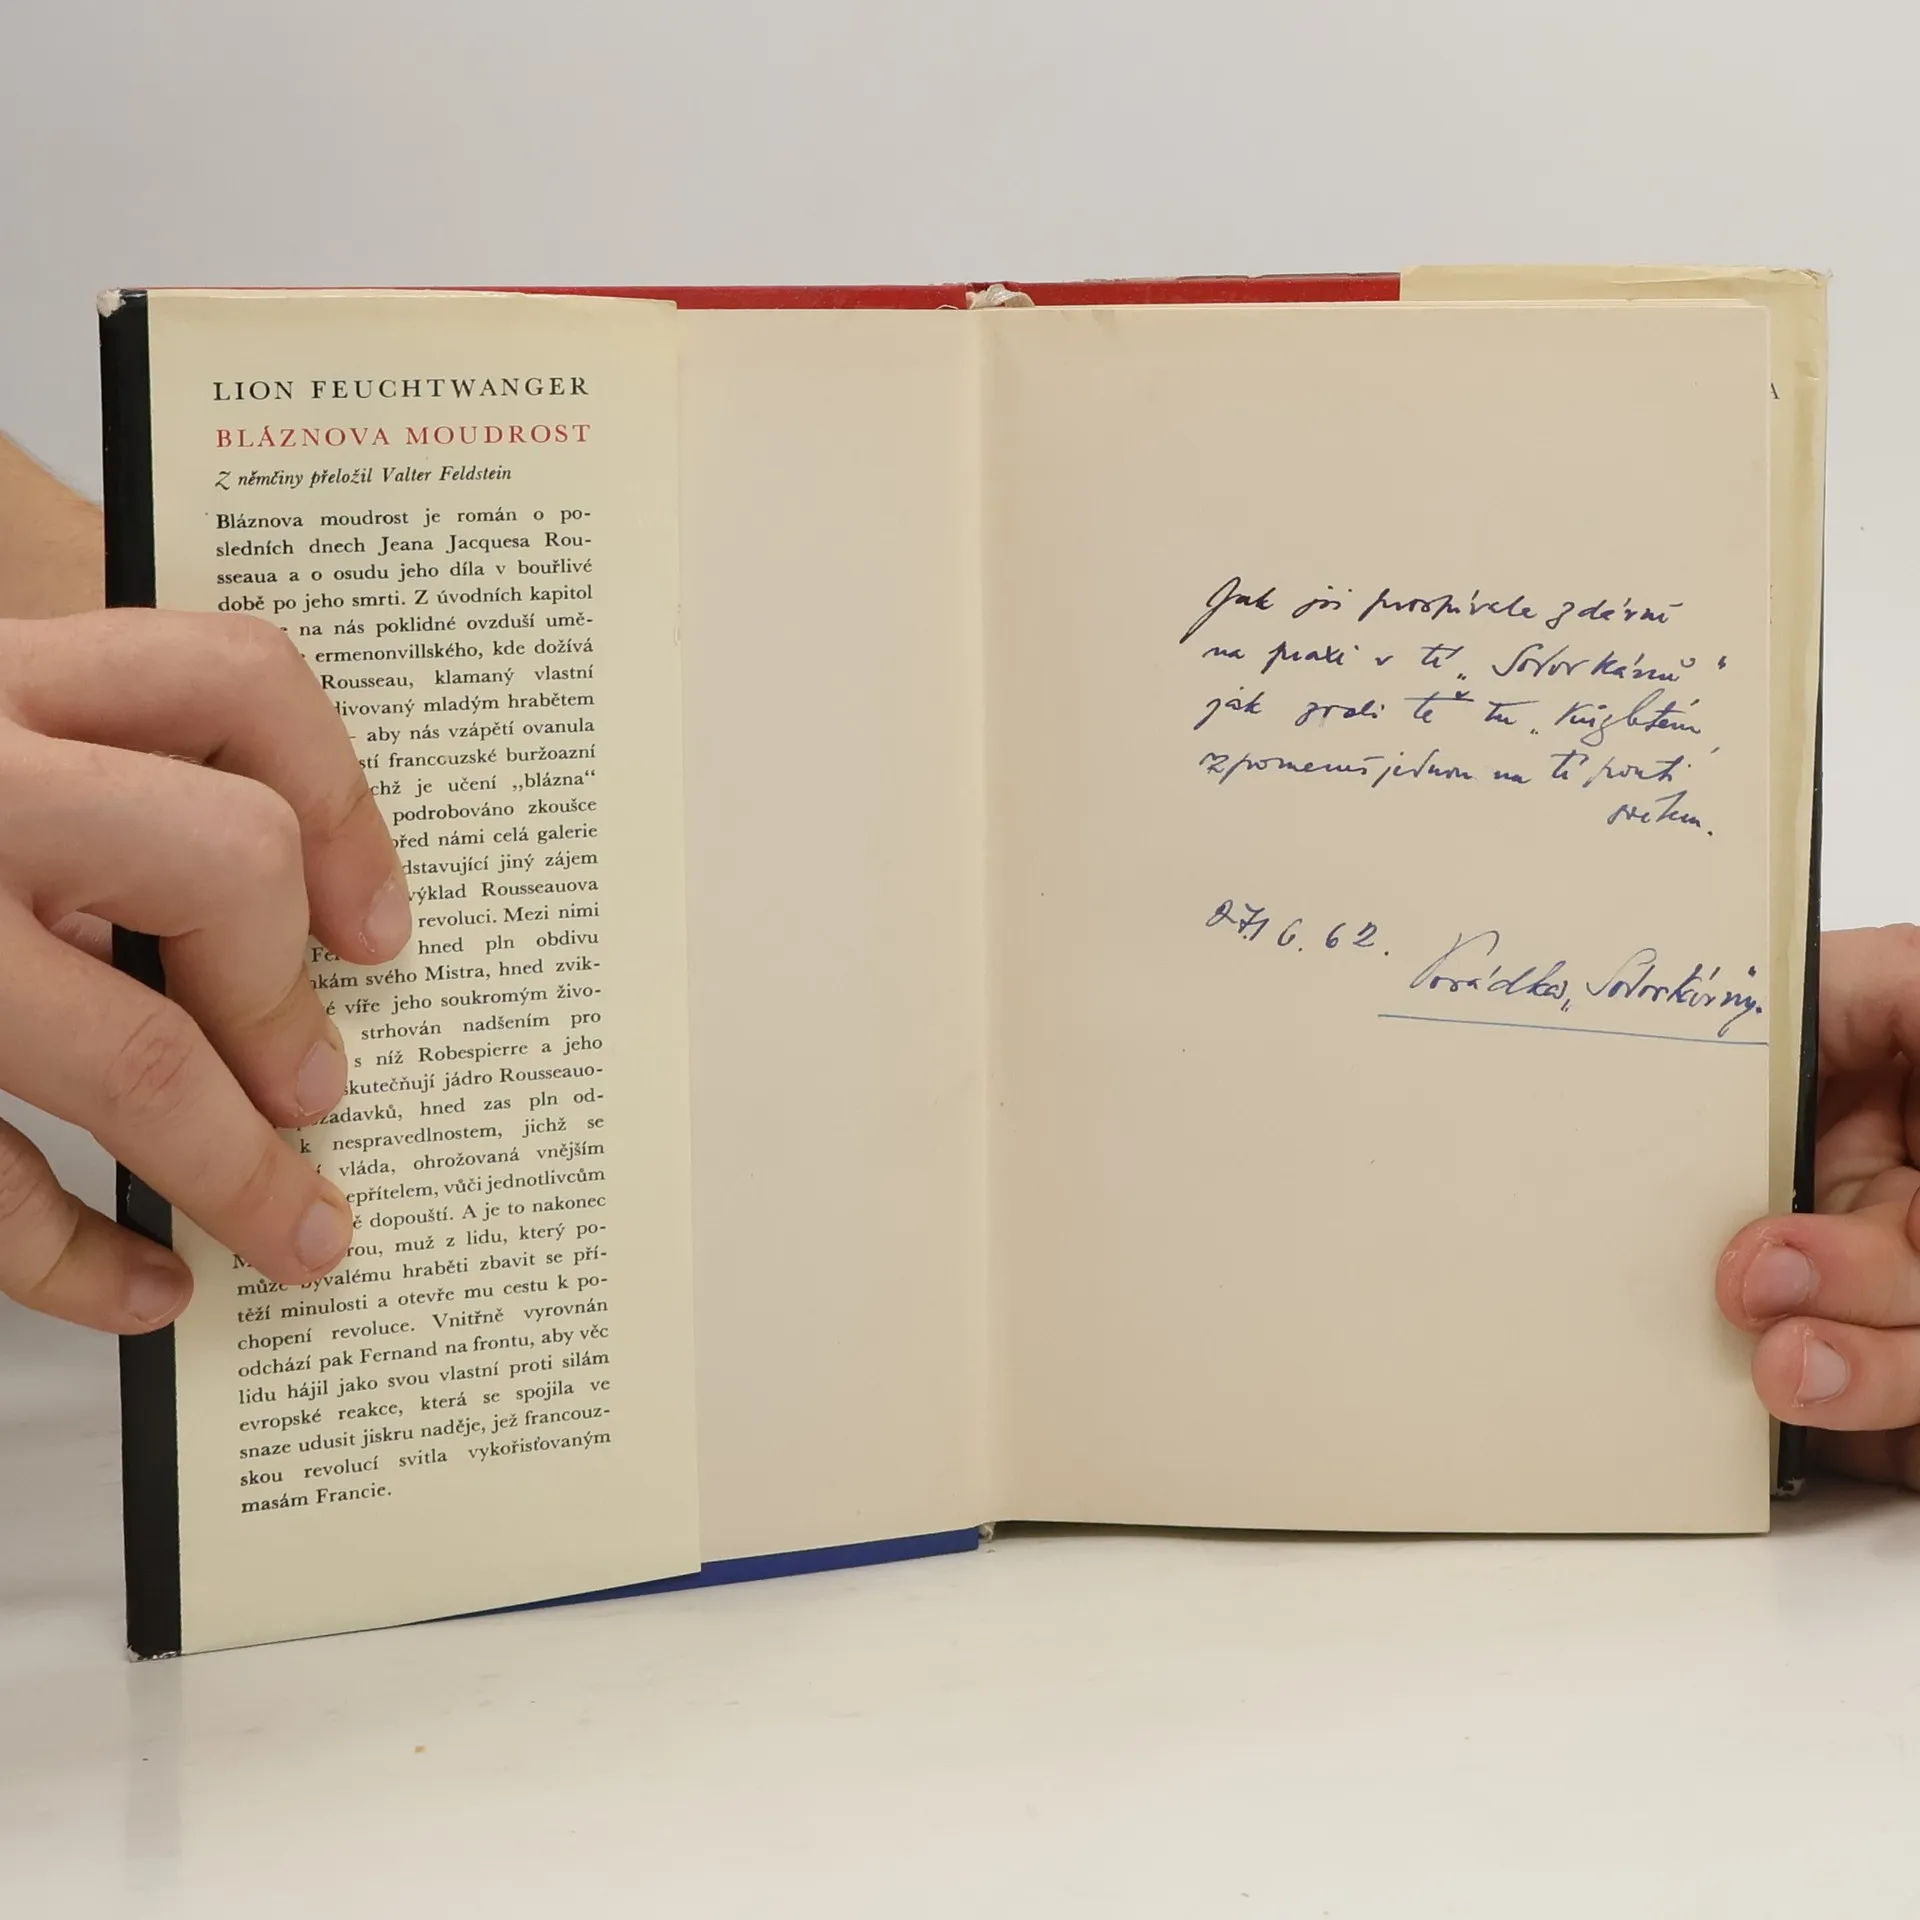 LION FEUCHTWANGER
BLÁZNOVA MOUDROST
Z němčiny přeložil Valter Feldstein
Bláznova moudrost je román o po-
sledních dnech Jeana Jacquesa Rou-
sseaua a o osudu jeho díla v bouřlivé
době po jeho smrti. Z úvodních kapitol
na nás poklidné ovzduší umě-
ermenonvillského, kde dožívá
Rousseau, klamaný vlastní
divovaný mladým hrabětem
– aby nás vzápětí ovanula
stí francouzské buržoazní
chž je učení „blázna“
podrobováno zkoušce
před námi celá galerie
dstavující jiný zájem
výklad Rousseauova
revoluci. Mezi nimi
Fe hned pln obdivu
nkám svého Mistra, hned zvik-
é víře jeho soukromým živo-
strhován nadšením pro
s níž Robespierre a jeho
skutečňují jádro Rousseauo-
žadavků, hned zas pln od-
k nespravedlnostem, jichž se
í vláda, ohrožovaná vnějším
epřítelem, vůči jednotlivcům
ě dopouští. A je to nakonec
M rou, muž z lidu, který po-
může bývalému hraběti zbavit se pří-
těží minulosti a otevře mu cestu k po-
chopení revoluce. Vnitřně vyrovnán
odchází pak Fernand na frontu, aby věc
lidu hájil jako svou vlastní proti silám
evropské reakce, která se spojila ve
snaze udusit jiskru naděje, jež francouz-
skou revolucí svitla vykořisťovaným
masám Francie.
A
Jak jsi prospívala zdárně
na praxi v té „
jak zvali tě tu „
zpomeneš jednou na té pouti
světem.
27/6. 62.